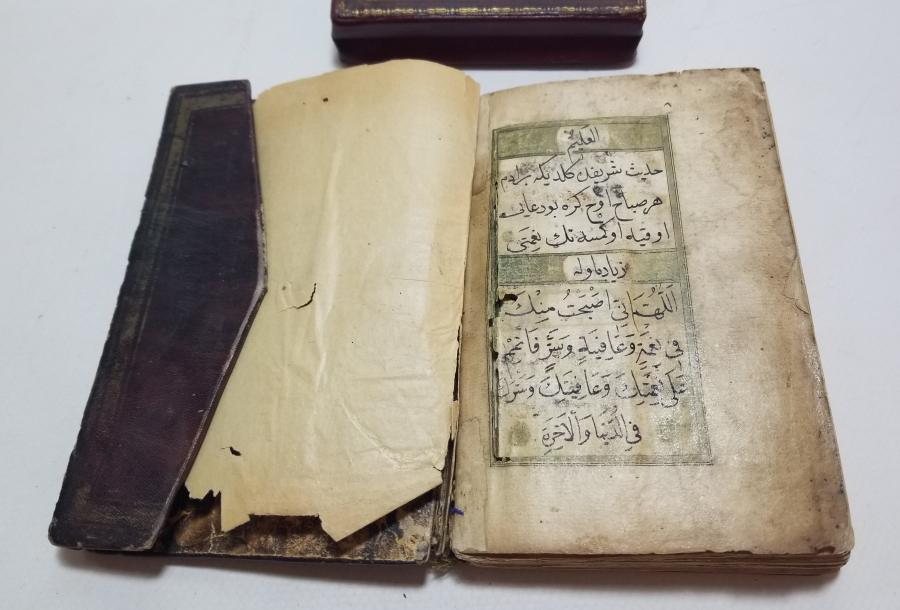 العظيم
حديث شريفده كلديكه برادم
هر صباح اوچ كره بو دعايى
اوقيه اول كمسه نك نعمتى
زياده اوله
اَللّٰهُمَّ اِنّى اَصْبَحْتُ مِنْكَ
فى نِعْمَةٍ وَعَافِيَةٍ وَسَتْرٍ فَاَتْمِمْ
نِعْمَتَكَ وَعَافِيَتَكَ وَسَتْرَكَ
فِى الدُّنْيَا وَالْاٰخِرَةِ